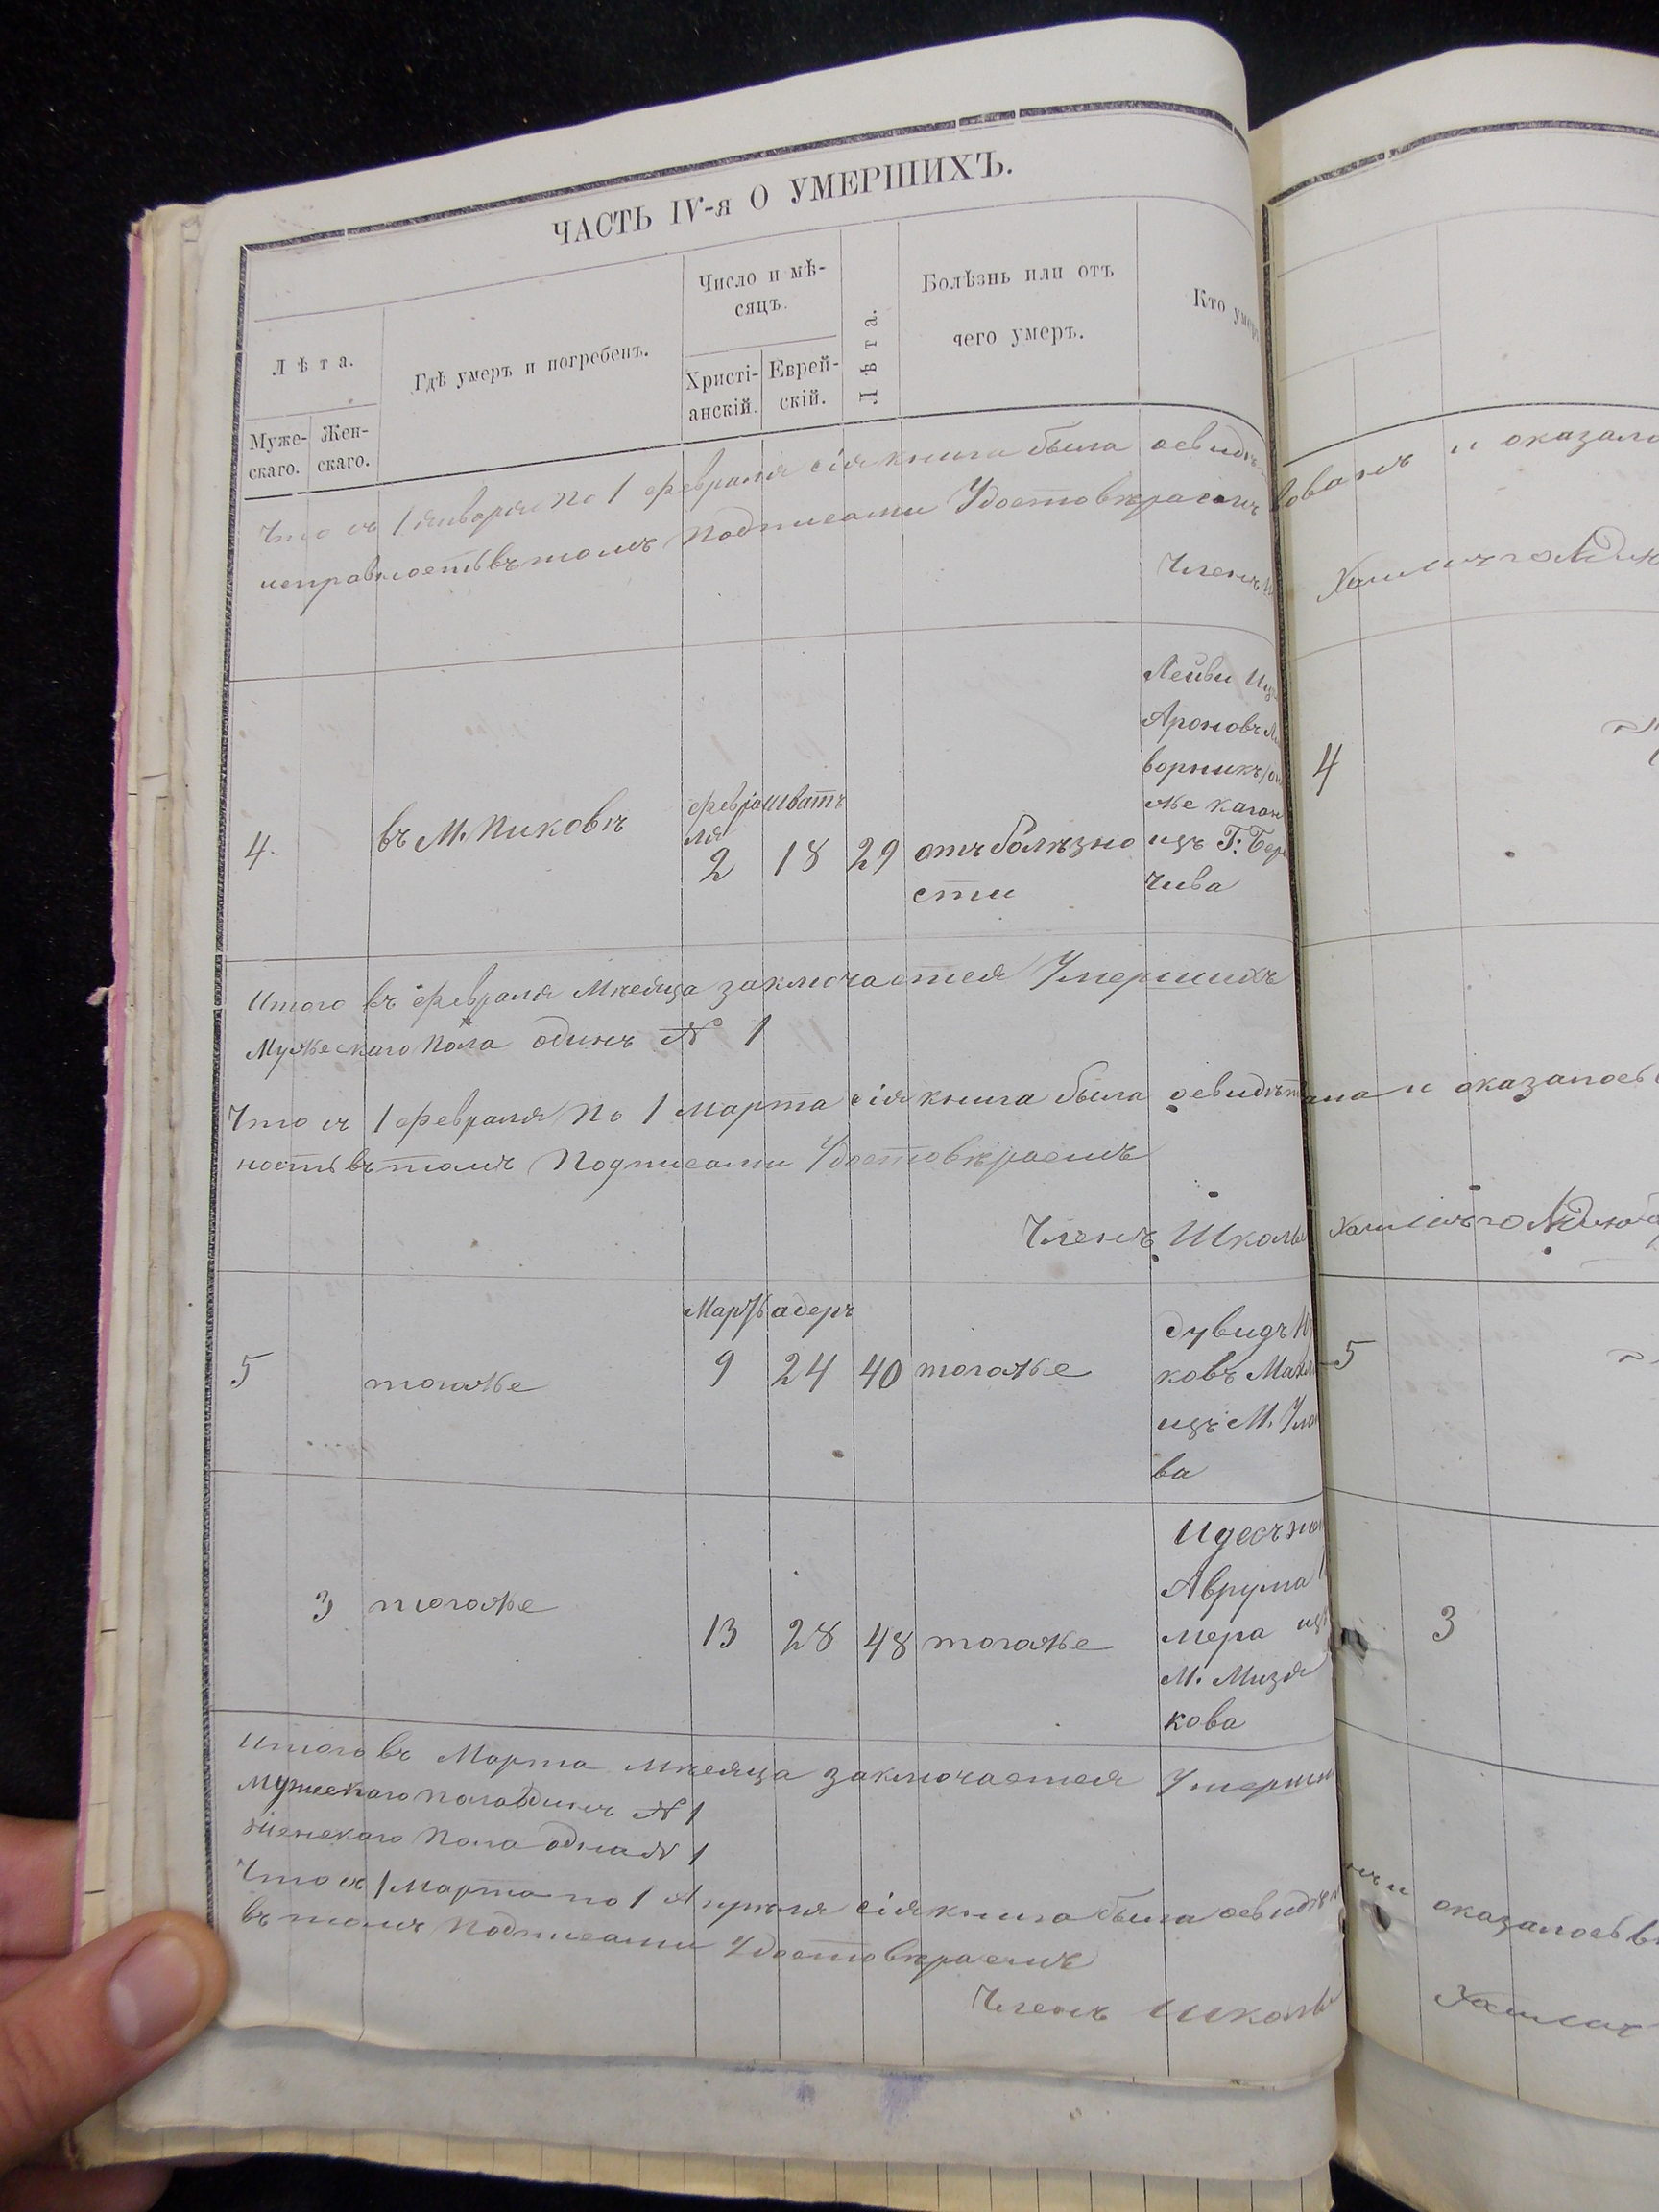 ЧАСТЬ IV-я О УМЕРШИХЪ.
Лѣта.
Муже-
скаго.
Жен-
скаго.
Гдѣ умеръ и погребенъ.
Число и мѣ-
сяцъ.
Христі-
анскій.
Еврей-
скій.
Лѣта.
Болѣзнь или отъ
чего умеръ.
Кто умер
Что съ 1 января по 1 февраля сія книга была освидѣ
исправность въ томъ подписами Удостовѣраемъ
и оказало
Членъ
4
4.
въ М. Пиковѣ
февра
ля
2
шватъ
18
29
отъ болѣзно
сти
Лейви
Ароновъ
ворникъ
же каган
изъ Г. Бер
чива
Итого въ февраля мѣсяца заключается Умершихъ
Мужескаго пола одинъ № 1
Что съ 1 февраля по 1 марта сія книга была освидѣт
и оказалось
ность въ томъ Подписами Удостовѣраемъ
Членъ Школы
5
тогоже
Мартъ
9
адеръ
24
40
тогоже
Дувидъ
ковъ
изъ М.
ва
5
3
тогоже
13
28
48
тогоже
Аврума
мера изъ
М. Мизя
кова
3
Итого въ Марта мѣсяца заключается Умерши
мужескаго пола одинъ № 1
женскаго Пола одна № 1
Что съ 1 марта по 1 Апрѣля сія книга была освидѣт
оказалось
въ томъ Подписами Удостовѣраемъ
Членъ Школы